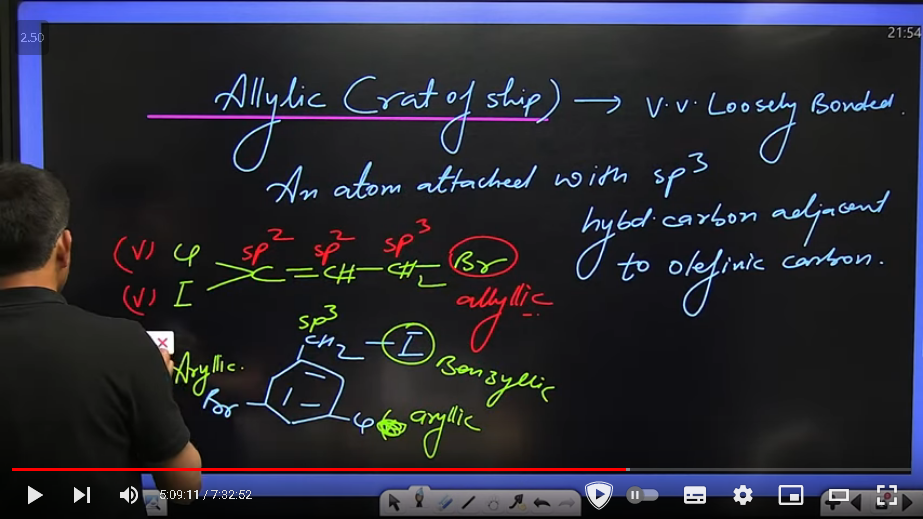 2.50
21:54
Allylic (rat of ship) → V.V. Loosely Bonded.
An atom attached with sp3
hybd. carbon adjacent
to olefinic carbon.
sp2 sp2 sp3
(V) Cl
C = CH - CH2 - Br
(V) I
allyllic
sp3
CH2 - I
Benzyllic
Aryllic.
Br
Cl aryllic
5:09:11 / 7:32:52